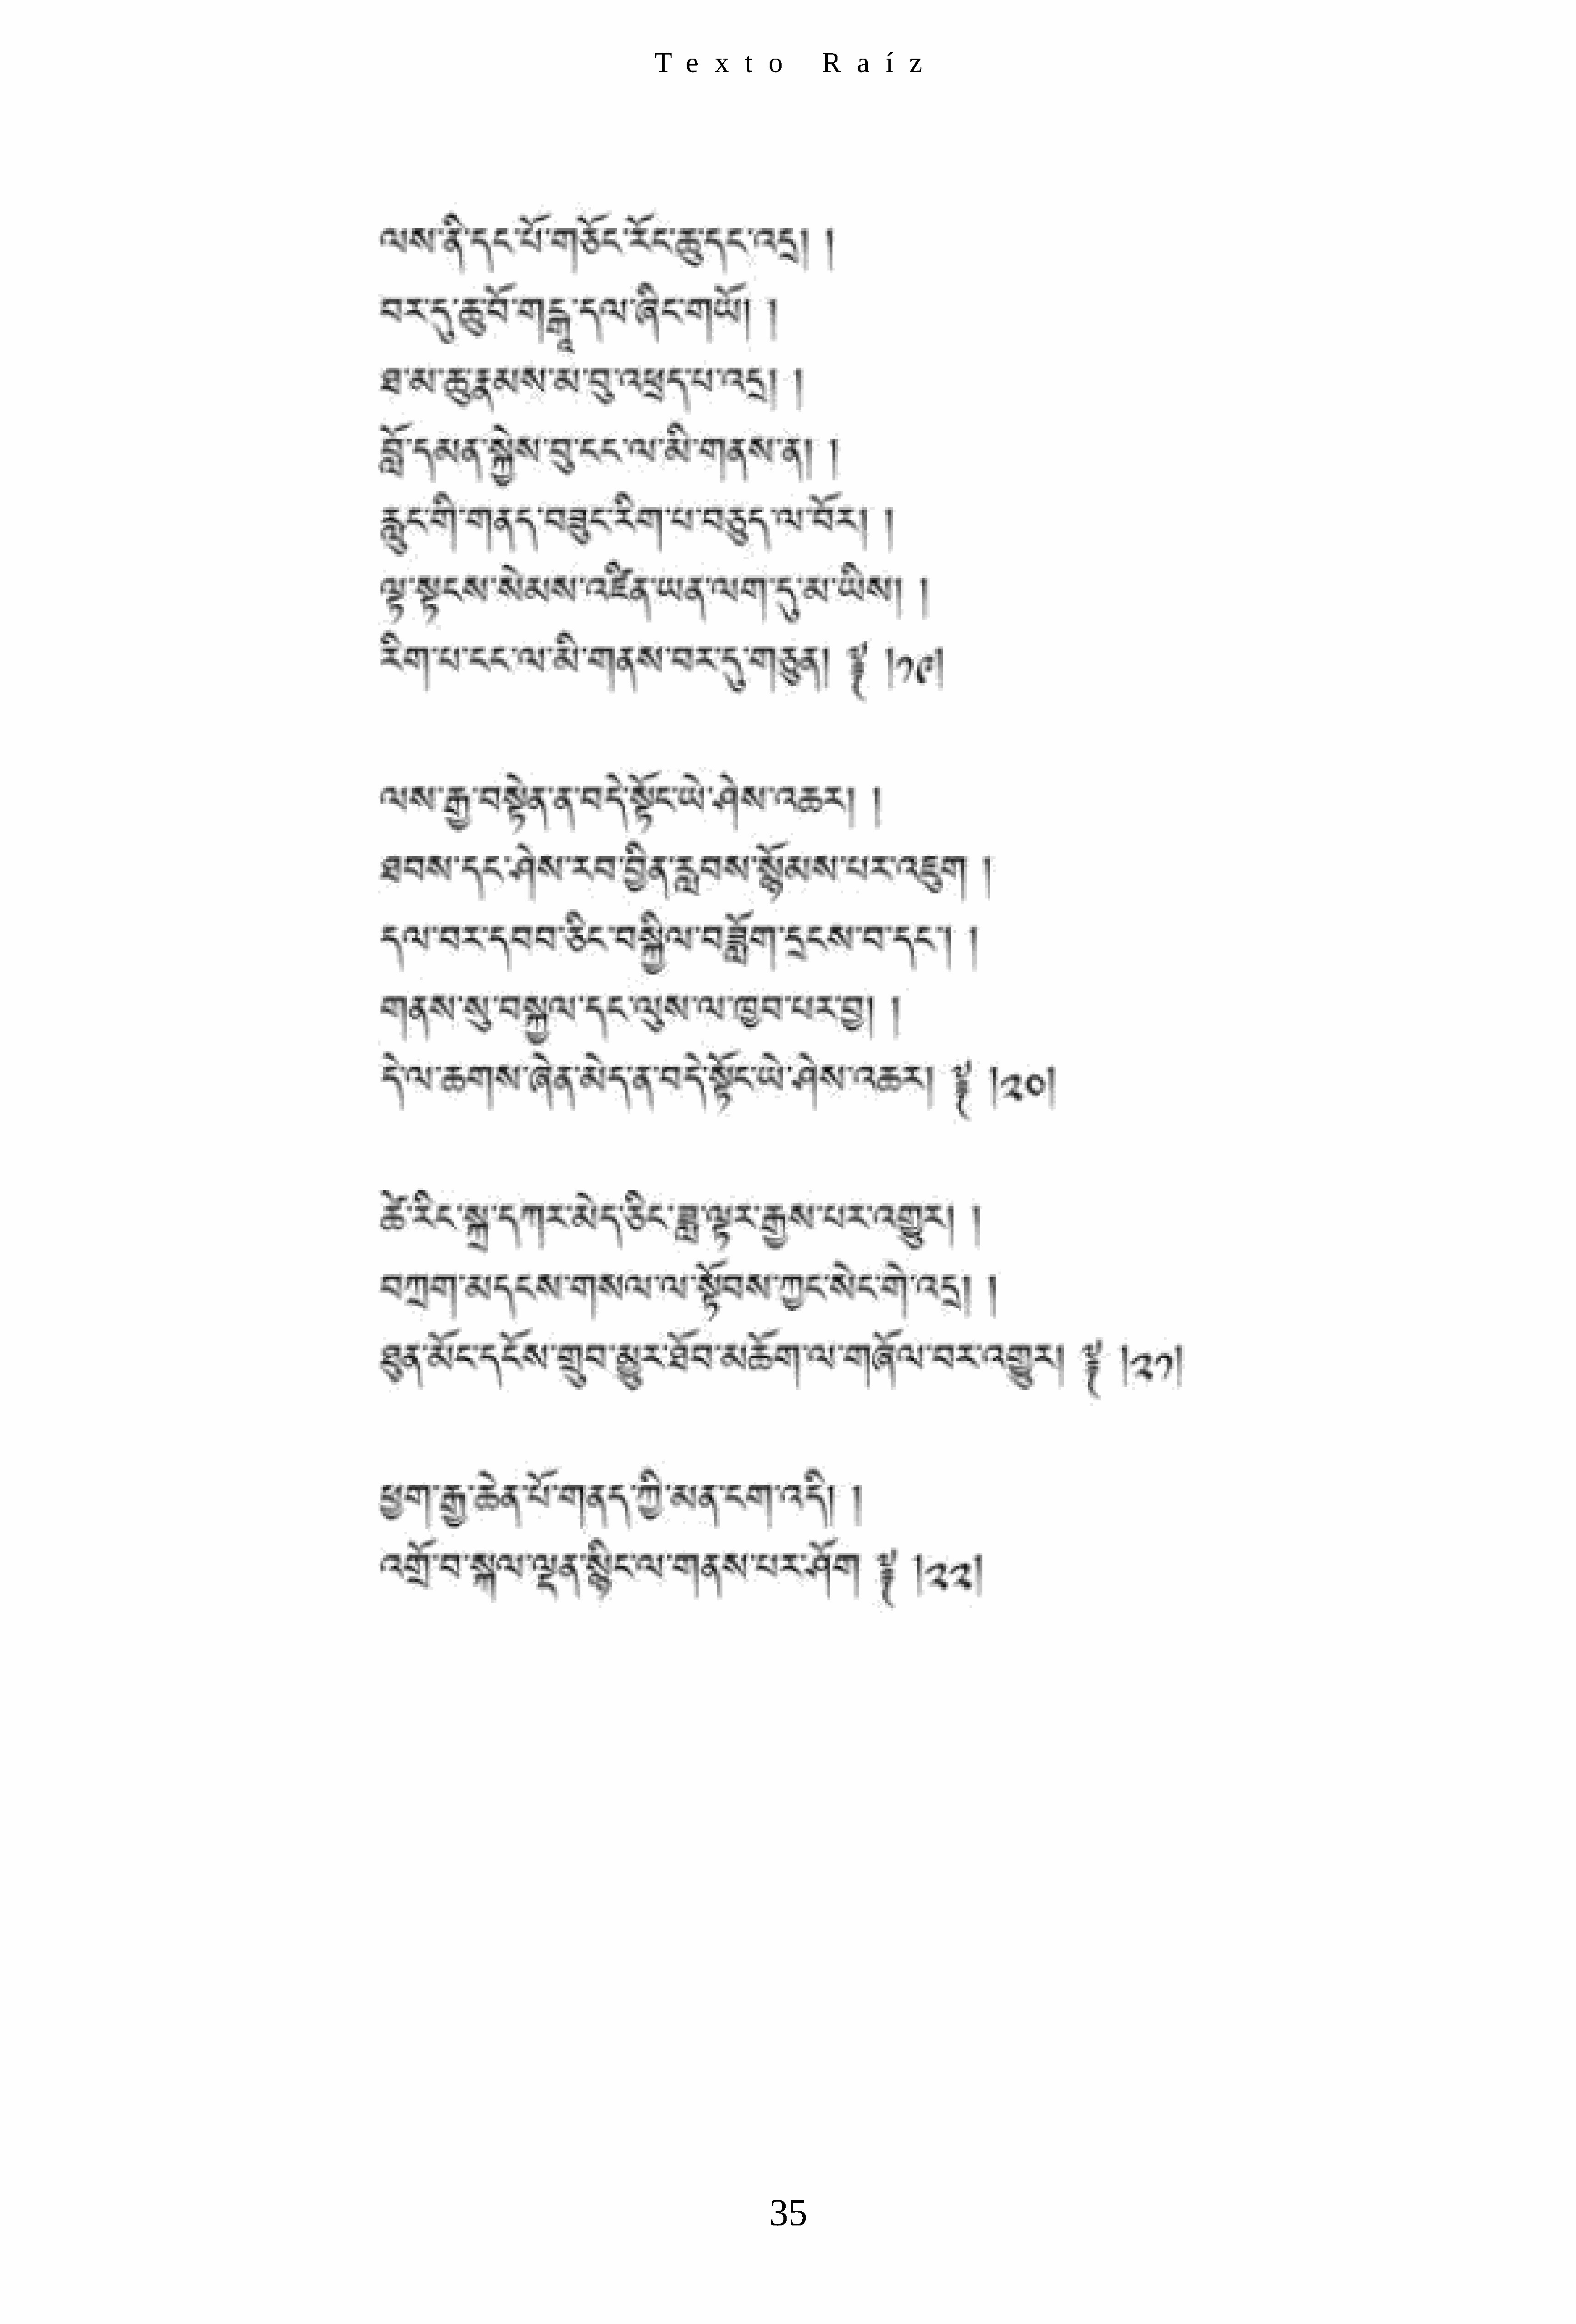 Texto Raíz
ལས་ནི་དང་པོ་གཅོང་རོང་ཆུ་དང་འདྲ། །
བར་དུ་ཆུ་བོ་གངྒཱ་དལ་ཞིང་གཡོ། །
ཐ་མ་ཆུ་རྣམས་མ་བུ་འཕྲད་པ་འདྲ། །
བློ་དམན་སྐྱེས་བུ་ངང་ལ་མི་གནས་ན། །
རླུང་གི་གནད་བཟུང་རིག་པ་བཅུད་ལ་བོར། །
ལྟ་སྟངས་སེམས་འཛིན་ཡན་ལག་དུ་མ་ཡིས། །
རིག་པ་ངང་ལ་མི་གནས་བར་དུ་གཅུན། ༈ །༡༩།
ལས་རྒྱ་བསྟེན་ན་བདེ་སྟོང་ཡེ་ཤེས་འཆར། །
ཐབས་དང་ཤེས་རབ་བྱིན་རླབས་སྙོམས་པར་འཇུག །
དལ་བར་དབབ་ཅིང་བསྐྱིལ་བཟློག་དྲངས་བ་དང་། །
གནས་སུ་བསྐྱལ་དང་ལུས་ལ་ཁྱབ་པར་བྱ། །
དེ་ལ་ཆགས་ཞེན་མེད་ན་བདེ་སྟོང་ཡེ་ཤེས་འཆར། ༈ །༢༠།
ཚེ་རིང་སྐྲ་དཀར་མེད་ཅིང་ཟླ་ལྟར་རྒྱས་པར་འགྱུར། །
བཀྲག་མདངས་གསལ་ལ་སྟོབས་ཀྱང་སེང་གེ་འདྲ། །
ཐུན་མོང་དངོས་གྲུབ་མྱུར་ཐོབ་མཆོག་ལ་གཞོལ་བར་འགྱུར། ༈ །༢༡།
ཕྱག་རྒྱ་ཆེན་པོ་གནད་ཀྱི་མན་ངག་འདི། །
འགྲོ་བ་སྐལ་ལྡན་སྙིང་ལ་གནས་པར་ཤོག ༈ །༢༢།
35